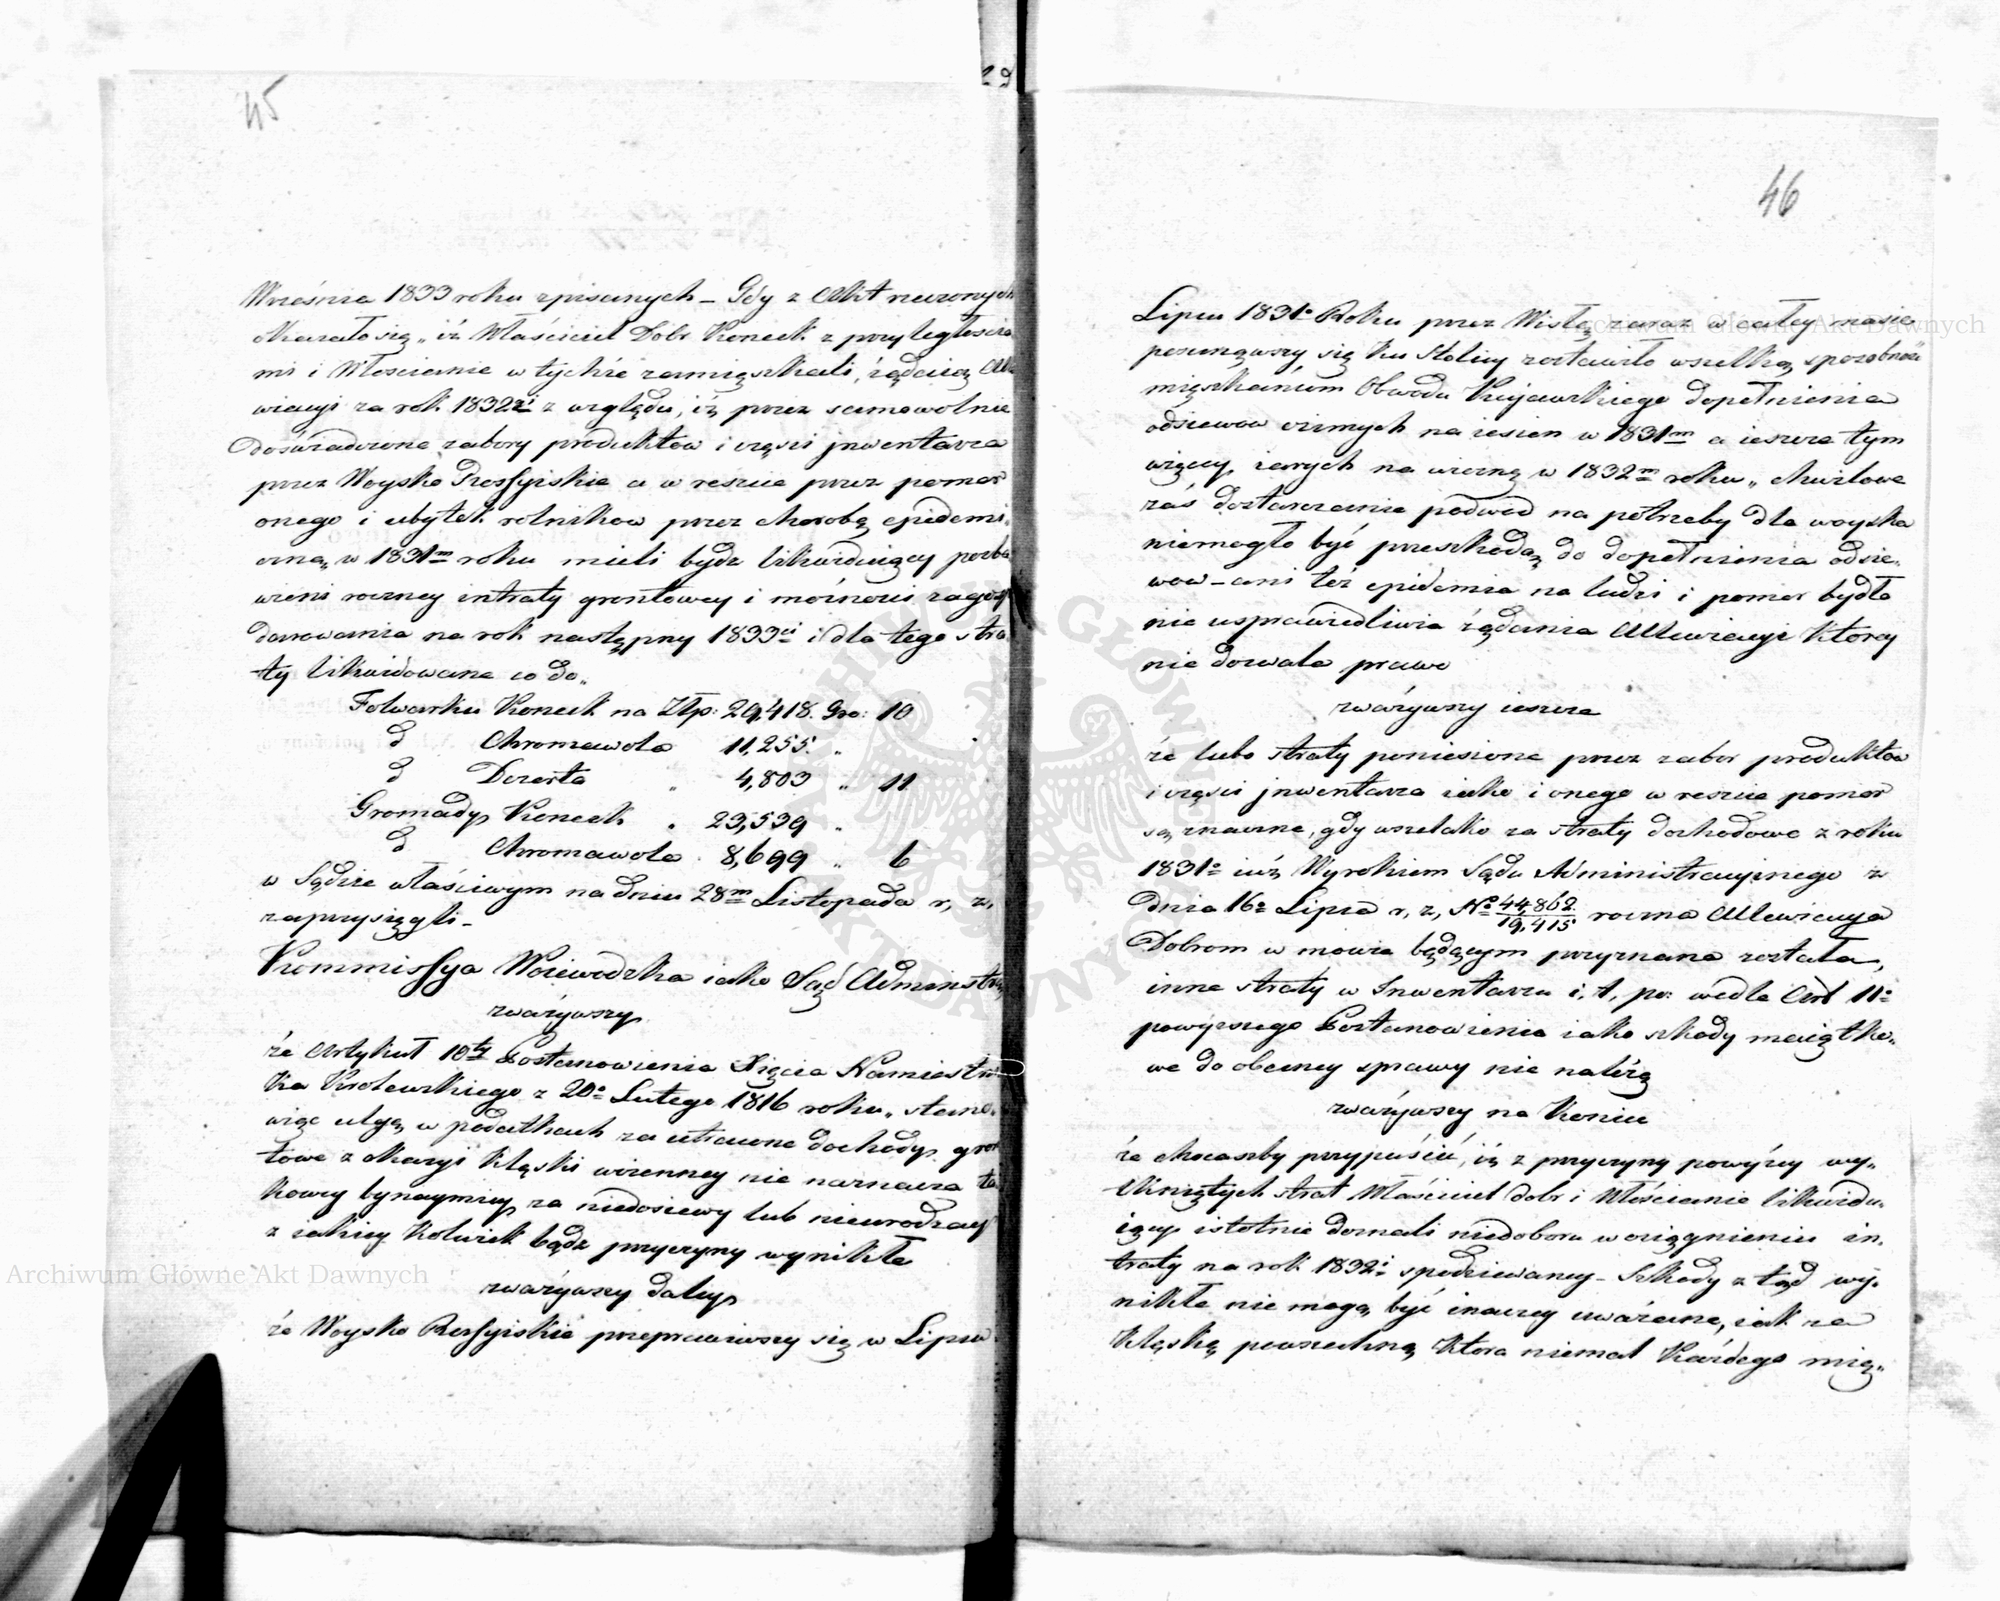 45
Września 1833 roku spisanych – Gdy z Akt rzeczonych
okazało się „ iż Właściciel Dobr Koneck z przyległościa
mi i Włościanie w tychże zamięszkali, żądaią Alle
wiacyi za rok 1832gi z względu, iż przez samowolnie
doświadczone zabory produktow i części jnwentarza
przez Woysko Rossyiskie a w reszcie przez pomor
onego i ubytek rolnikow przez chorobę epidemi„
czną, w 1831m roku mieli bydz likwiduiący pozba
wieni roczney intraty grontowey i możności zagosp
darowania na rok następny 1833ci i dla tego stra„
ty likwidowane co do„
Folwarku Koneck na Złp: 29,418. Gro: 10
d Chromawola 11,255. „
d Dozerta „ 4,803 „ 11
Gromady Koneck „ 23,539 „
d Chromawola 8,699 „ 6
w Sądzie właściwym na dniu 28m Listopada r, z,
zaprzysięgli –
Kommissya Woiewodzka iako Sąd Administra
zważywszy
że Artykuł 10ty Postanowienia Xięcia Namiestni
ka Krolewskiego z 20o Lutego 1816 roku „ stano„
wiąc ulgę w podatkach za utracone dochody gron
towe z okazyi klęski woienney nie naznacza ta
kowey bynaymniey za niedosiewy lub nieurodzay
z iakiey kolwiek bądz przyczyny wynikłe
zważywszy daley
że Woysko Rossyiskie przeprawiwszy się w Lipcu
46
Lipcu 1831o Roku przez Wisłę zaraz w całey masie
posunąwszy się ku Stolicy zostawiło wszelką sposobność
mięszkańcom Obwodu Kujawskiego dopełnienia
odsiewow ozimych na iesien w 1831m a ieszcze tym
więcey iarych na wiosnę w 1832m roku „ chwilowe
zaś dostarczenie podwod na potrzeby dla woyska
niemogło być przeszkodą do dopełnienia odsie„
wow – ani też epidemia na ludzi i pomor bydła
nie usprawiedliwia żądania Allewiacyi ktorey
nie dozwala prawo
zważywszy ieszcze
że lubo straty poniesione przez zabor produktow
i części jnwentarza iako i onego w reszcie pomor
są znaczne, gdy wszelako za straty dochodowe z roku
1831o iuż Wyrokiem Sądu Administracyinego z
dnia 16o Lipca r, z, No 44,862/19,415 roczna Allewiacya
Dobrom w mowie będącym przyznana została,
inne straty w Inwentarzu i, t, p: wedle Art 11o
powyższego Postanowienia iako szkody maiątko„
we do obecney sprawy nie należą
zważywszy na koniec
że chociażby przypuścić, iż z przyczyny powyżey wy„
tkniętych strat Właściciel dobr i Włościanie likwidu„
iący istotnie doznali niedoboru w osiągnieniu in„
traty na rok 1832i spodziewaney – Szkody z tąd wy„
nikłe nie mogą być inaczey uważane, iak za
klęskę powszechną ktora niemal każdego mię„
Archiwum Główne Akt Dawnych
Archiwum Główne Akt Dawnych
ARCHIWUM GŁÓWNE AKT DAWNYCH